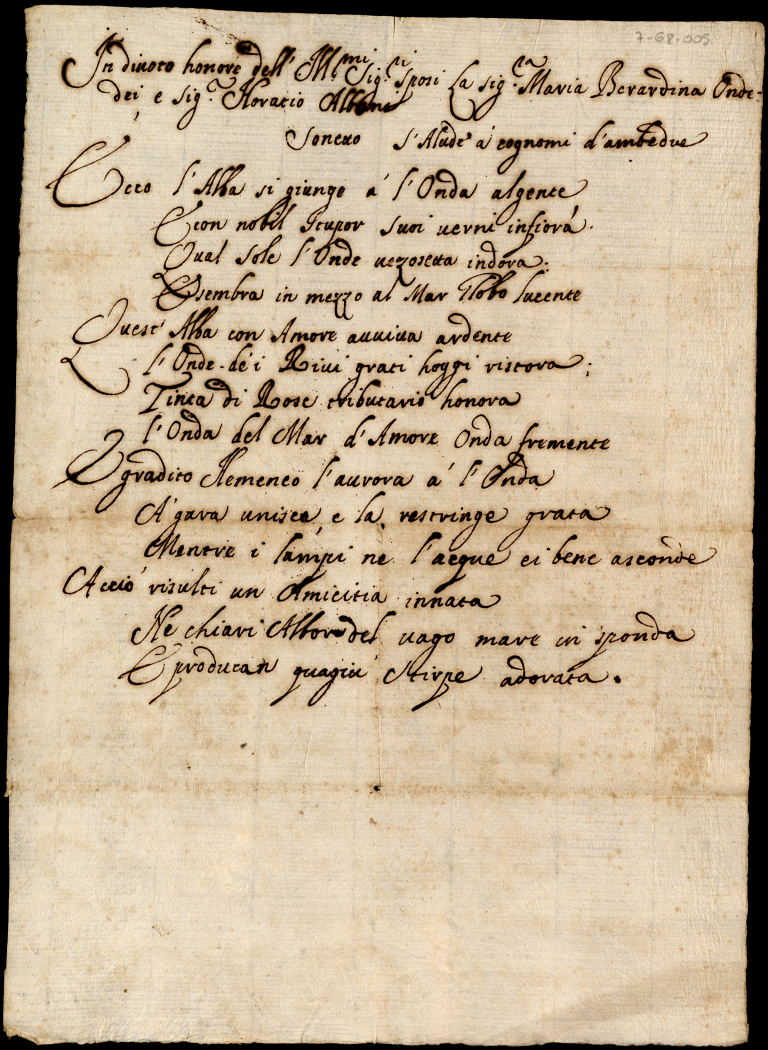 7-68-005
In divoto honore dell' Ill.mi Sig.ri Sposi La sig.ra Maria Berardina Onde-
dei e sig.r Horatio Albani
Sonetto s'Alude a' cognomi d'ambedue
Ecco l'Alba si giunge a' l'Onda algente
E con nobil stupor suoi verni infiora.
Qual sole l'Onde vezzosetta indora:
E sembra in mezzo al Mar Globo lucente
Quest' Alba con Amore avviva ardente
l'Onde-de i Rivi grati hoggi ristora;
Tinta di Rose tributario honora
l'Onda del Mar d'Amore Onda fremente
E gradito Hemeneo l'aurora a' l'Onda
A' gara unisce, e la restringe grata
Mentre i lampi ne l'acque ei bene asconde
Acciò risulti un Amicitia innata
Ne chiari Albori del vago mare in sponda
E producan quagiu' stirpe adorata.